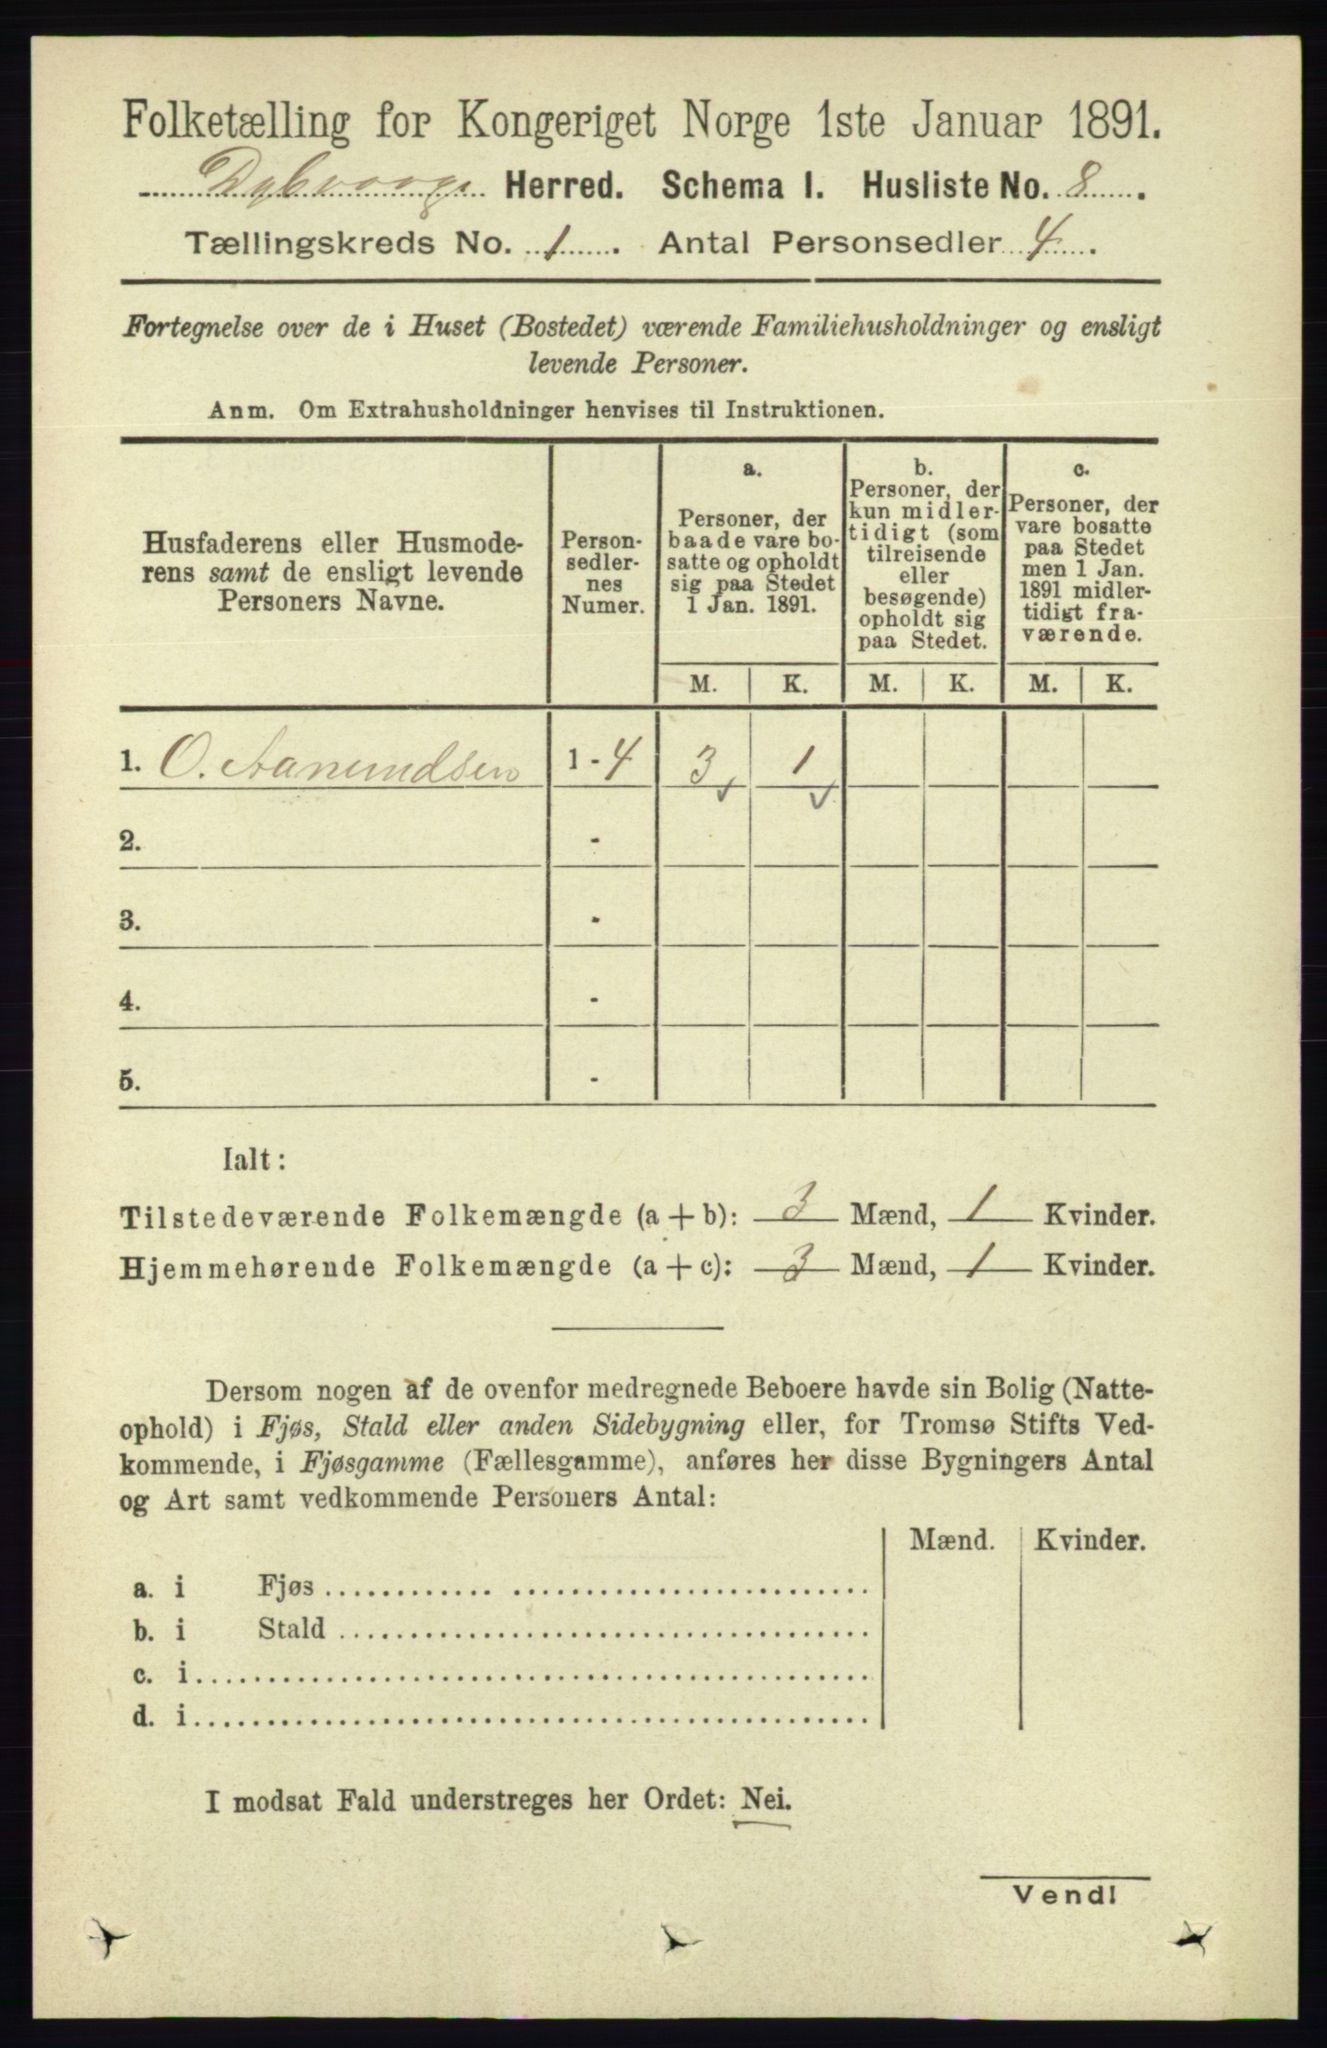 Folketælling for Kongeriget Norge 1ste Januar 1891.
Dybvaag Herred. Schema I. Husliste No. 8.
Tællingskreds No. 1. Antal Personsedler 4.
Fortegnelse over de i Huset (Bostedet) værende Familiehusholdninger og ensligt
levende Personer.
Anm. Om Extrahusholdninger henvises til Instruktionen.
Husfaderens eller Husmode-
rens samt de ensligt levende
Personers Navne.
Person-
sedler-
nes
Numer.
a.
Personer, der
baade vare bo-
satte og opholdt
sig paa Stedet
1 Jan. 1891.
b.
Personer, der
kun midler-
tidigt (som
tilreisende
eller
besøgende)
opholdt sig
paa Stedet.
c.
Personer, der
vare bosatte
paa Stedet
men 1 Jan.
1891 midler-
tidigt fra-
værende.
M. K. M. K. M. K.
1. O. Aanundsen 1 - 4 3 1
2. -
3. -
4. -
5. -
Ialt:
Tilstedeværende Folkemængde (a + b): 3 Mænd, 1 Kvinder.
Hjemmehørende Folkemængde (a + c): 3 Mænd, 1 Kvinder.
Dersom nogen af de ovenfor medregnede Beboere havde sin Bolig (Natte-
ophold) i Fjøs, Stald eller anden Sidebygning eller, for Tromsø Stifts Ved-
kommende, i Fjøsgamme (Fællesgamme), anføres her disse Bygningers Antal
og Art samt vedkommende Personers Antal:
Mænd. Kvinder.
a. i Fjøs
b. i Stald
c. i
d. i
I modsat Fald understreges her Ordet: Nei.
Vend!